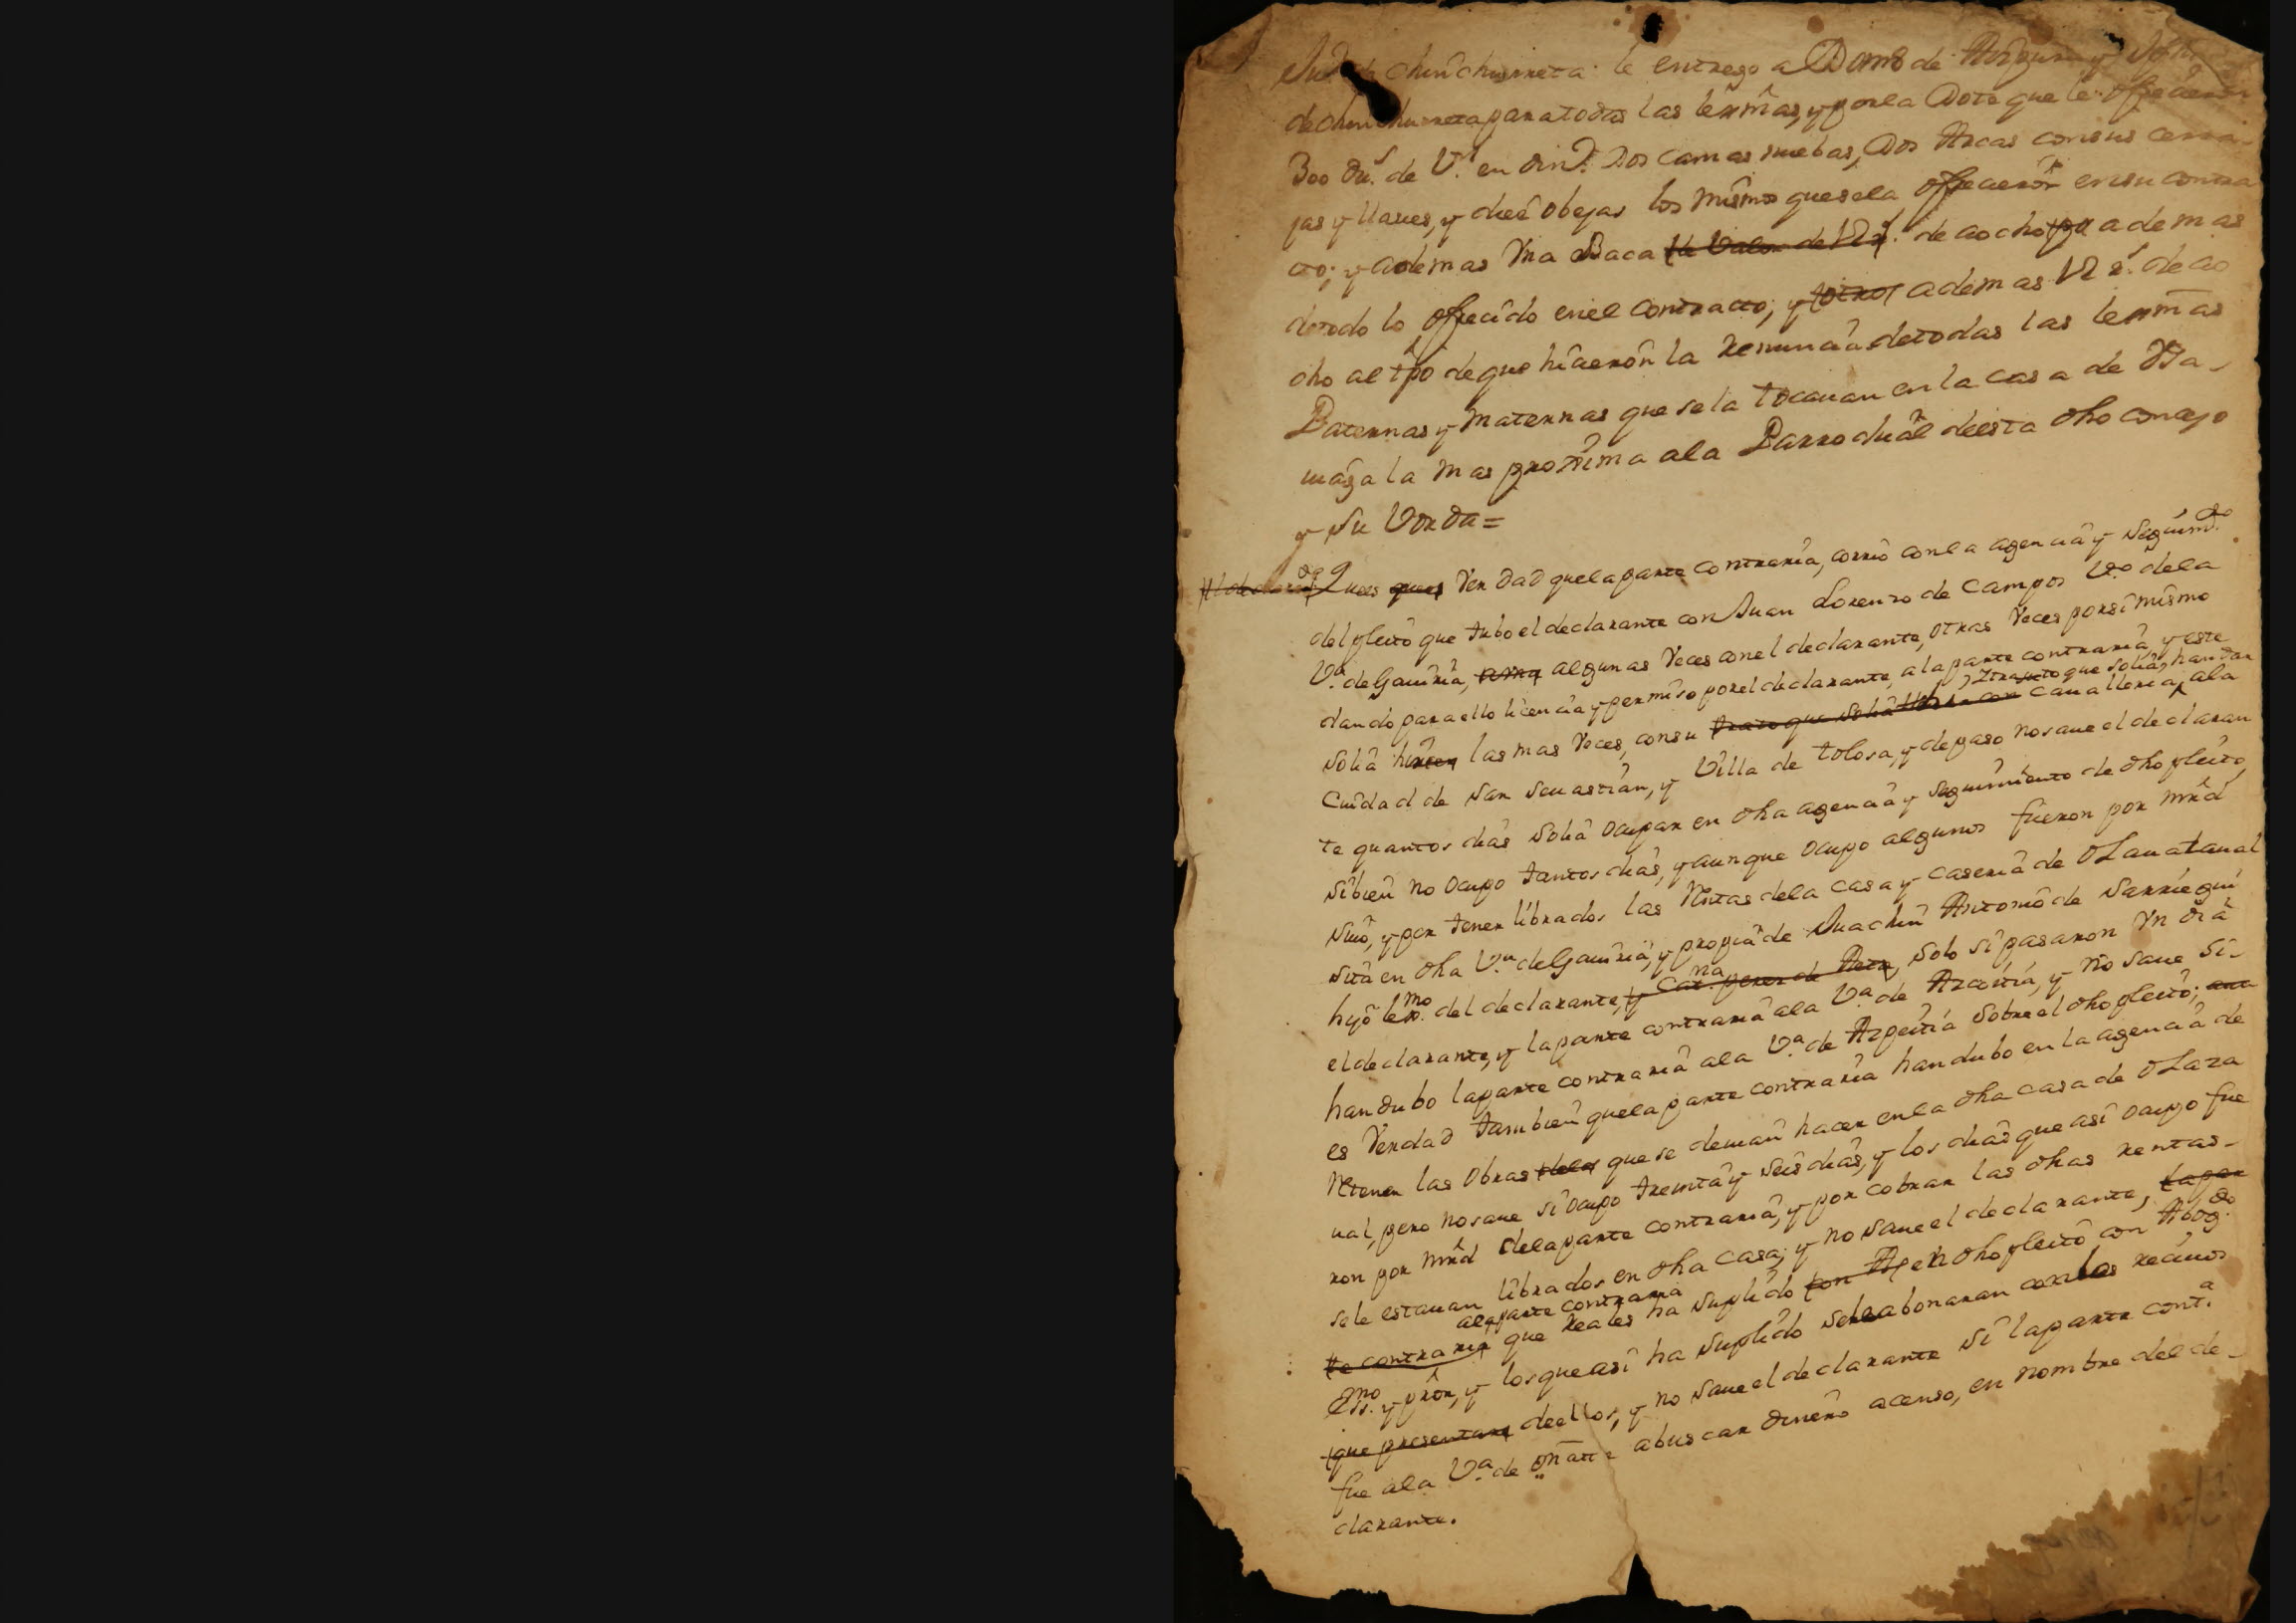 de chinchurreta le entrego a Dom.º de Aizpuru y Jph
de chinchurreta para todas las lexmas, y por la Dote que le ofrecieron
300 du.s de V.n en din.o Dos camas nuebas, Dos Arcas con sus cerra-
jas y llaues, y diez obejas los mismos que se la ofrecieron en su contra
cto; y ademas Vna Baca de Valor de 12 r.s de ao cho pa ademas
de todo lo ofrecido en el contracto, y otros ademas 12 r.s de ao
cho al tpo de que hicieron la renuncia de todas las lexmas
Paternas y maternas que se la tocauan en la casa de
maza la mas proxima ala Parrochial de esta dho concejo
y su Vorda=
El declarante Que es que es Verdad que la parte contraria, corrio con la agencia y seguim.to
del pleito que tubo el declarante con Juan Lorenzo de Campos V.o de la
V.a de Gauiria, algunas Veces con el declarante, otras Veces por si mismo
dando para ello licencia y permiso por el declarante, a la parte contraria, y este
solia hir las mas Veces, con su trato que solia con caualleria, ala
Itrasunto que solia, handar
Ciudad de San Seuastian, y Villa de tolosa, y de paso no saue el declaran
te quantos dias solia ocupar en dha agencia y seguimiento de dho pleito,
si bien no ocupo tantos dias, y aunque ocupo algunos fueron por mrd
suio, y por tener librados las Rentas dela casa y caseria de OLauatanal
sita en dha V.a de Gauiria, y propia de Juachin Antonio de Sarriegui
hijo lex.mo del declarante, y Cat.na perez de Aeta, solo si pasaron Vn dia
el declarante, y la parte contraria ala V.a de Azcoitia, y no saue si-
handubo la parte contraria ala V.a de Azpeitia sobre el dho pleito;
es Verdad tambien que la parte contraria handubo en la agencia de
Retener las Obras de las que se deuian hacer en la dha casa de OLaza
ual, pero no saue si ocupo treinta y seis dias, y los dias que asi ocupo fue
ron por mrd dela parte contraria, y por cobrar las dhas rentas-
se le estauan librados en dha casa; y no saue el declarante, la par
te contraria que Reales ha suplido con A en dho pleito con Abog.do
ala parte contraria
Ess.no y pror, y los que asi ha suplido se le abonaran con los reciuos
que presentare de ellos, y no saue el declarante si la parte cont.a
fue ala V.a de oñate abuscar dinero acenso, en nombre del de-
clarante.